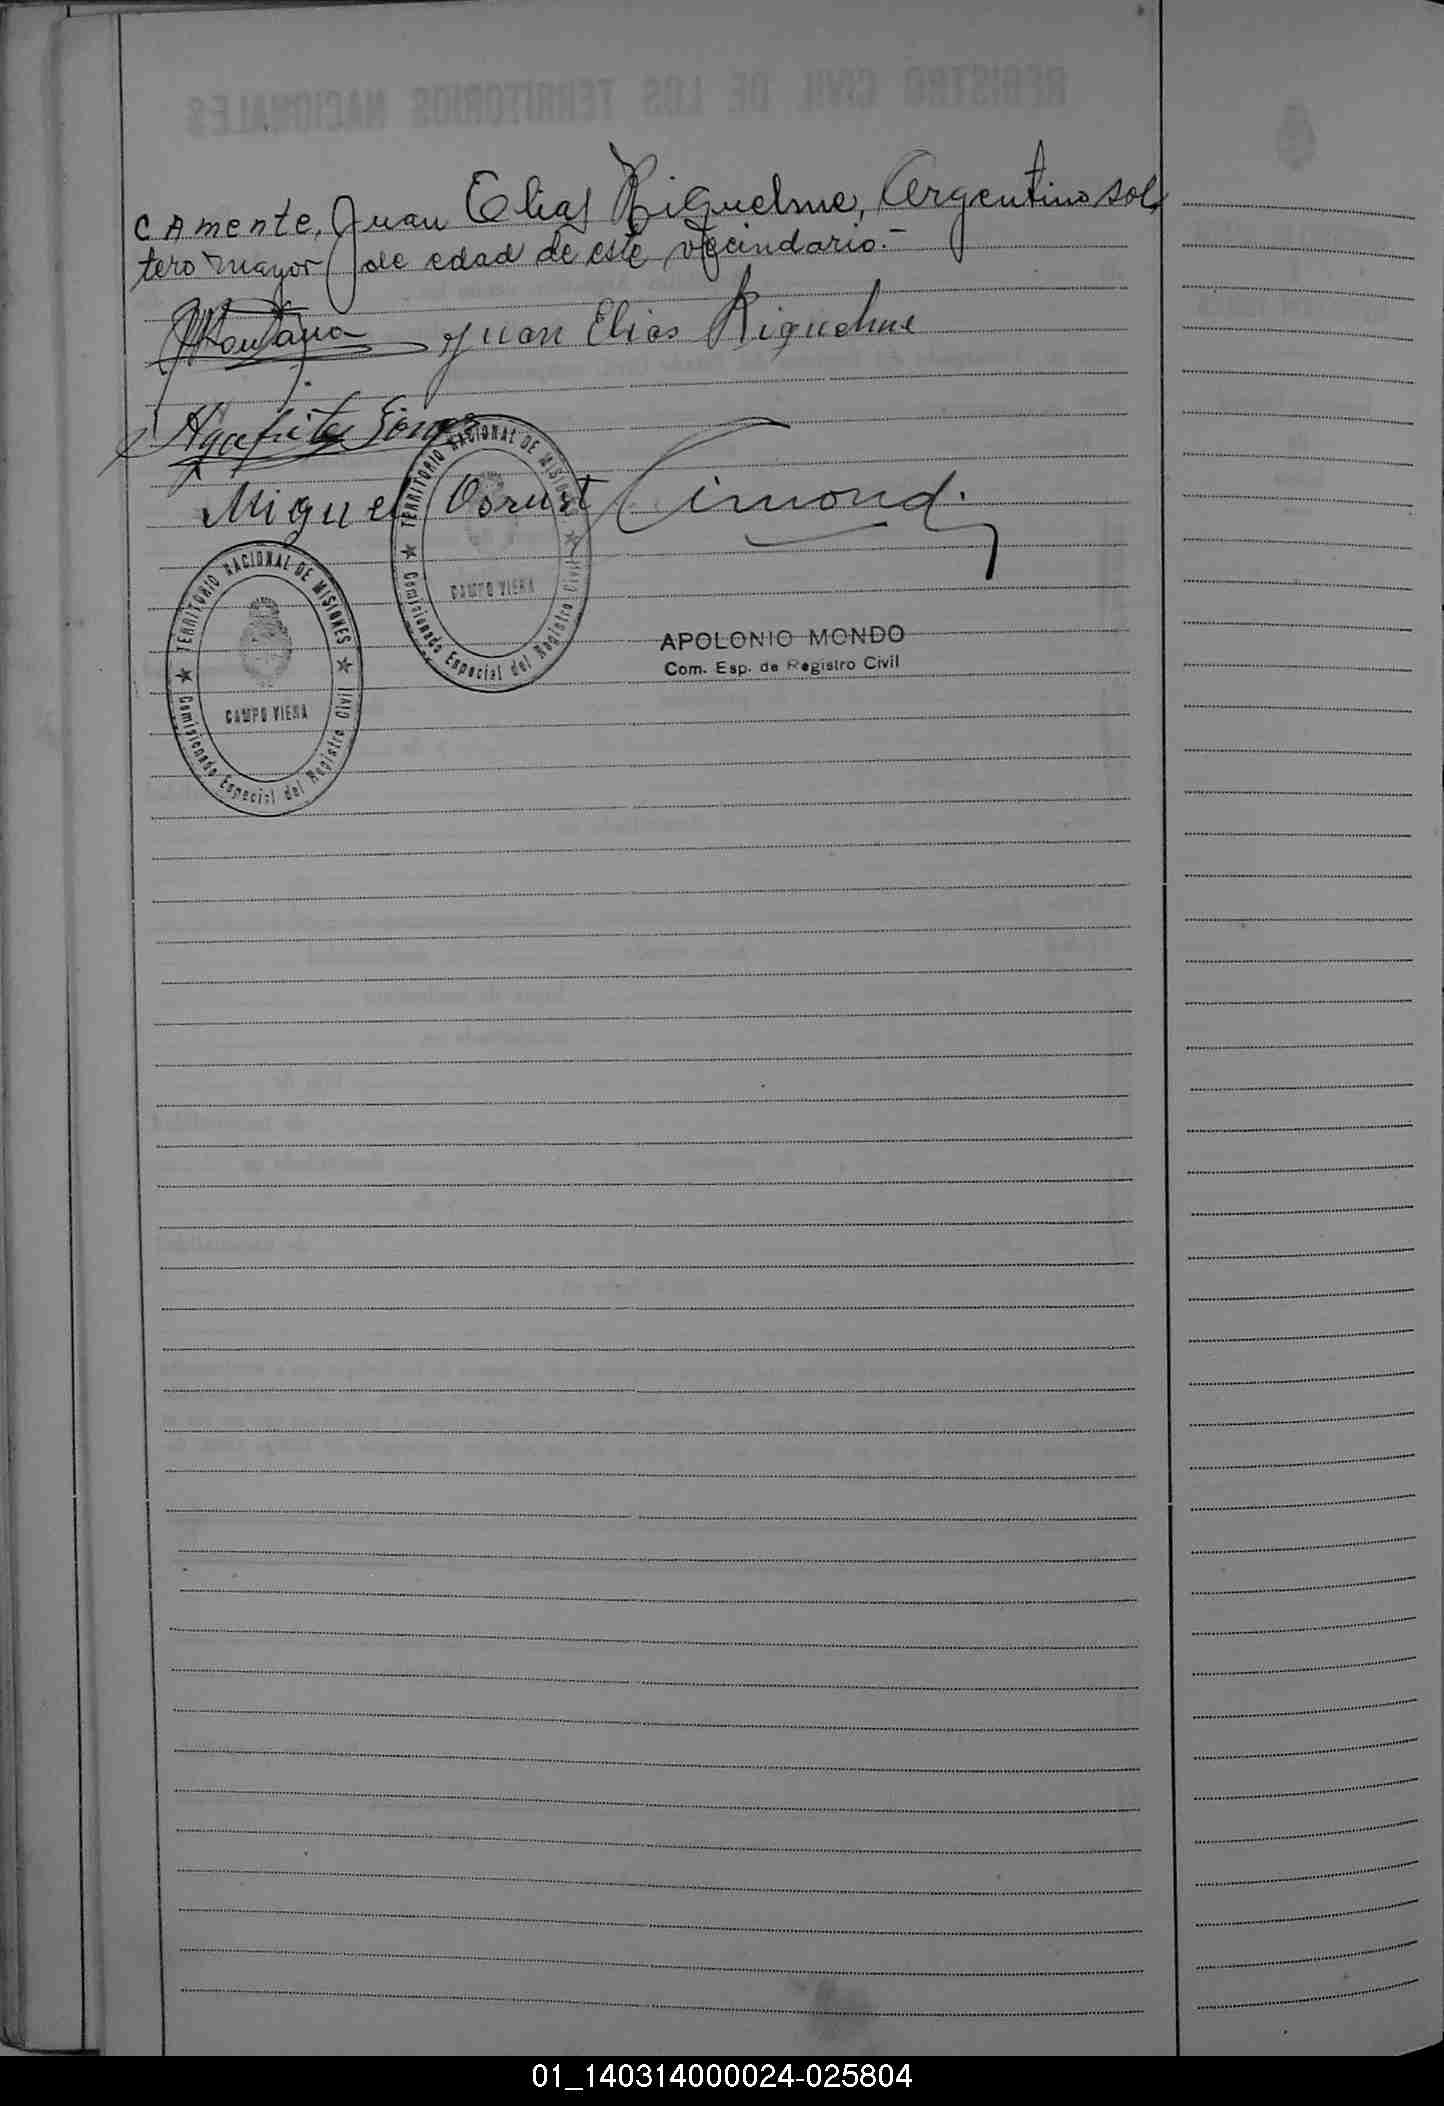 REGISTRO CIVIL DE LOS TERRITORIOS NACIONALES
camente, Juan Elias Riquelme, Argentino sol
tero mayor de edad de este vecindario.-
Juan Elias Riquelme
Miguel
TERRITORIO NACIONAL DE MISIONES
CAMPO VIERA
Comisionado Especial del Registro Civil
TERRITORIO NACIONAL DE MISIONES
CAMPO VIERA
Comisionado Especial del Registro Civil
APOLONIO MONDO
Com. Esp. de Registro Civil
01_140314000024-025804